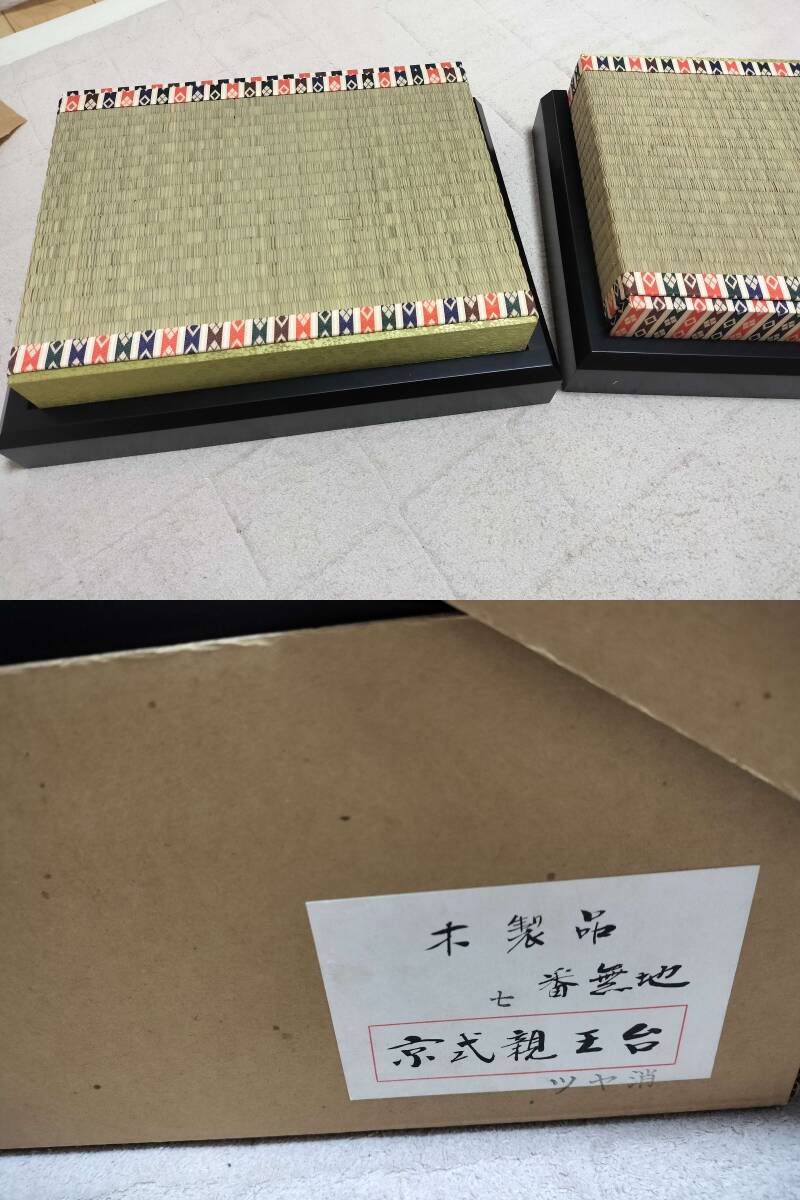 木製品
七番無地
京式親王台
ツヤ消